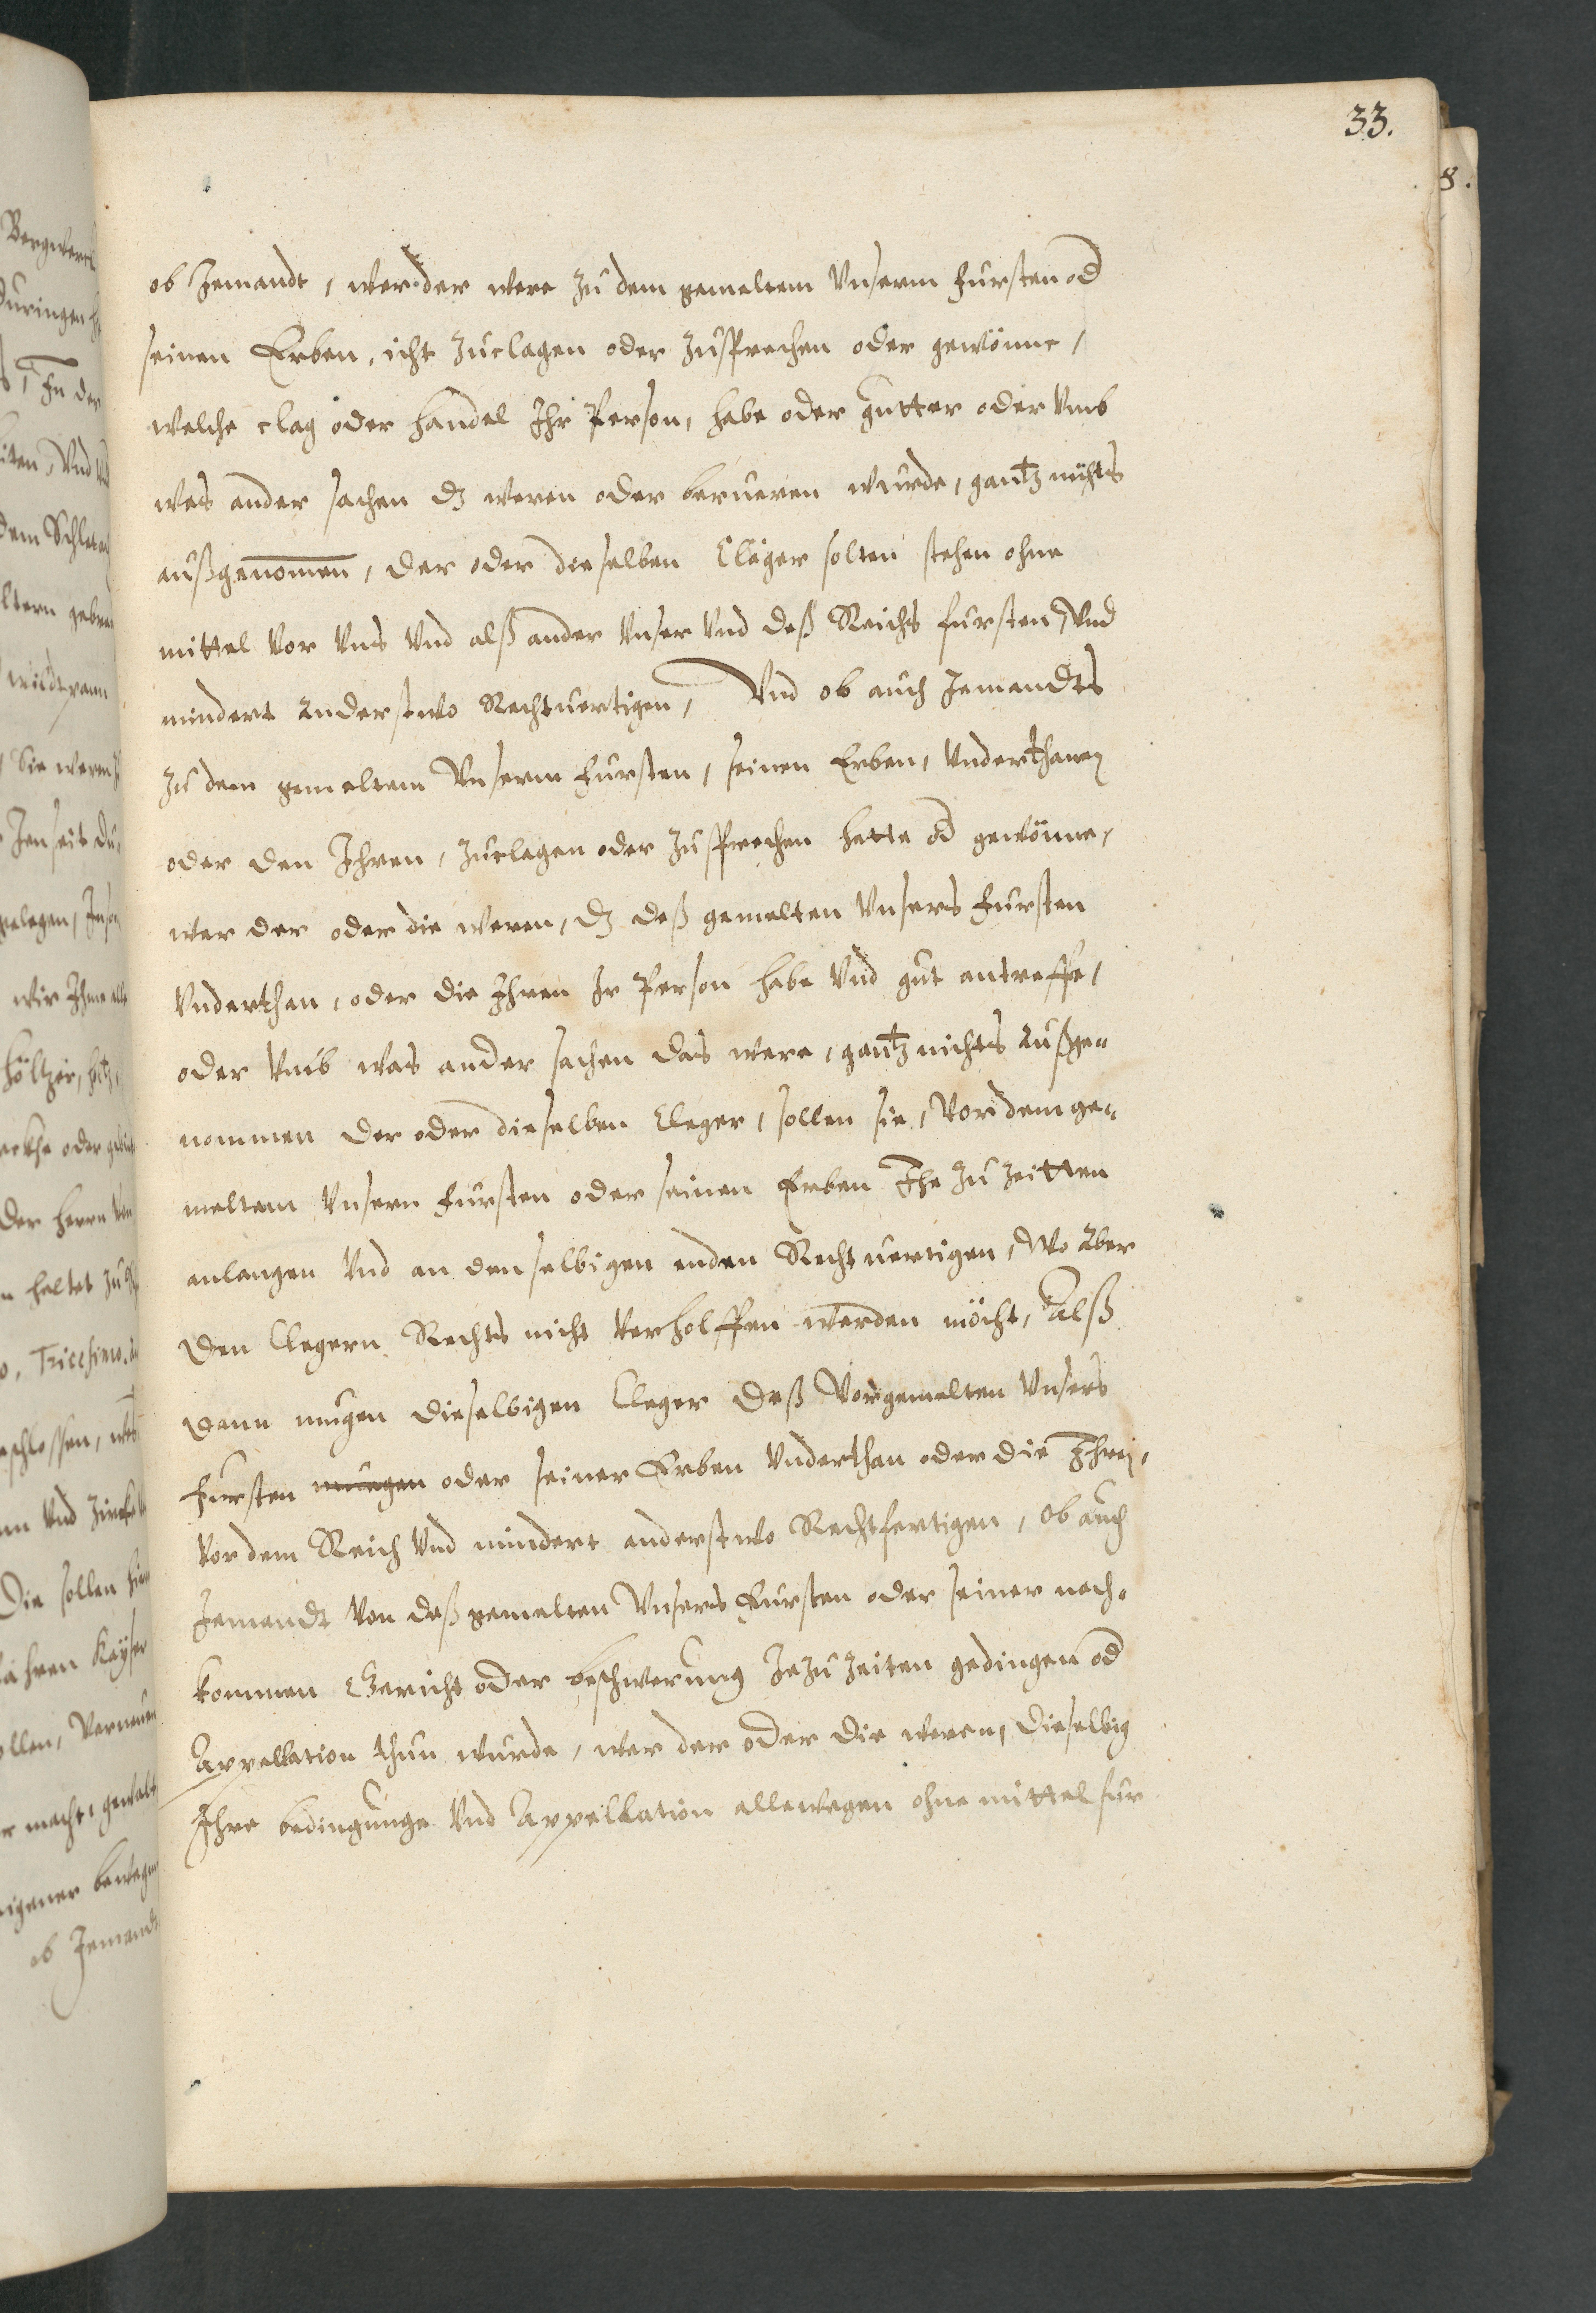 33.
8.
ob Jemandt, wer der were zu dem gemeltem Vnserm Fursten od
seinen Erben, icht zuclagen oder zusprechen oder gewönne,
welche clag oder handel Ihr Person, habe oder gutter oder Vmb
was ander sachen dz weren oder berueren wurde, gantz nichts
außgenommen, der oder dieselben Cläger solten stehen ohne
mittel Vor Vns Vnd alß ander Vnser Vnd deß Reichs fursten, Vnd
mindert anderstwo Rechtuertigen, Vnd ob auch Jemandts
zu dem gemeltem Vnserm Fursten, seinen Erben, Vnderthanen
oder den Ihren, zuclagen oder zusprechen hette od gewönne,
wer der oder die weren, dz deß gemelten Vnsers Fursten
Vnderthan, oder die Ihren Ir Person habe Vnd gut antreffe,
oder Vmb was ander sachen das were, gantz nichts außge-
nommen der oder dieselben Cleger, sollen sie, Vor dem ge-
meltem Vnsern Fursten oder seinen Erben Ihe zu Zeitten
anlangen Vnd an denselbigen enden Rechtuertigen, Wo aber
den Clegern Rechts nicht Verholffen werden möcht, Alß
dann mugen dieselbigen Cleger deß Vorgemelten Vnsers
Fursten mugen oder seiner Erben Vnderthan oder die Ihren,
Vor dem Reich Vnd mindert anderstwo Rechtfertigen, Ob auch
Jemandt Von deß gemelten Vnsers Fursten oder seiner nach-
kommen Gericht oder beschwerung Jezu Zeiten gedingen od
Appellation thun wurde, wer der oder die weren, dieselbig
Ihre bedingunge Vnd Appellation allewegen ohne mittel fur
ob Jemandt